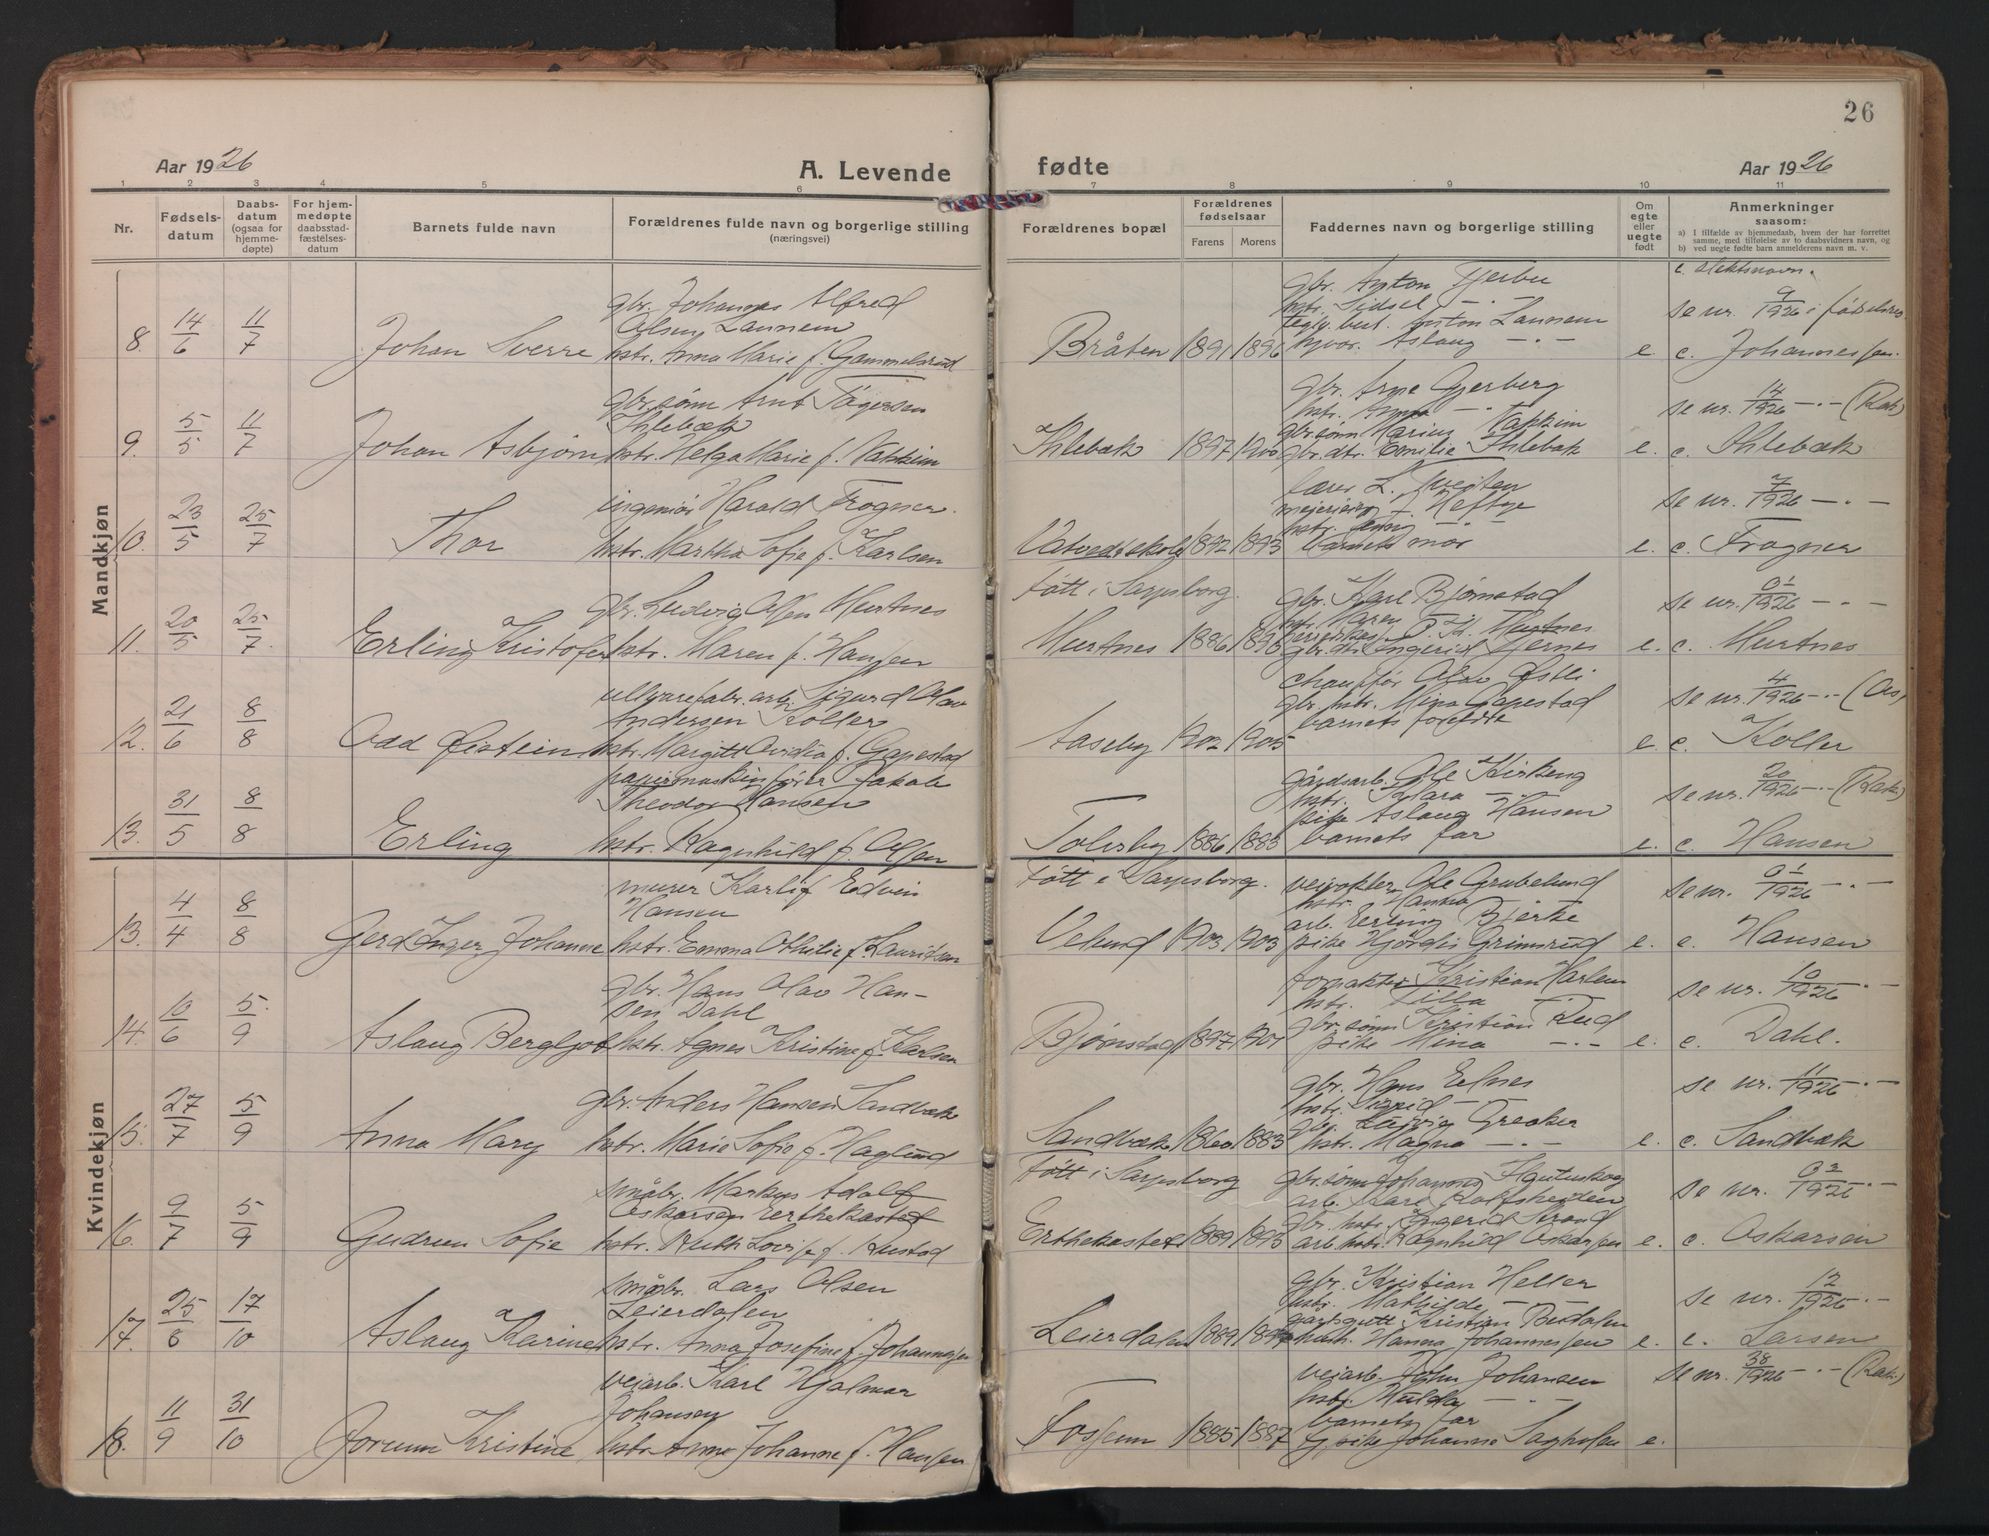 26
Aar 1926
A. Levende
fødte
Aar 1926
1 2 3 4 5 6 7 8 9 10 11
Nr.
Fødsels-
datum
Daabs-
datum
(ogsaa for
hjemme-
døpte)
For hjem-
medøpte
daabsstad-
fæstelses-
datum
Barnets fulde navn
Forældrenes fulde navn og borgerlige stilling
(næringsvei)
Forældrenes bopæl
Forældrenes
fødselsaar
Farens
Morens
Faddernes navn og borgerlige stilling
Om
egte
eller
uegte
født
Anmerkninger
saasom:
a) I tilfælde av hjemmedaab, hvem der har forrettet
samme, med tilføielse av to daabsvidners navn, og
b) ved uegte fødte barn anmelderens navn m. v.
c. slektsnavn.
Mandkjøn
gbr. Johannes Alfred
Olsen Lannem
8. 14/6 11/7 Johan Sverre hstr. Anna Marie f. Gammelsrud
Bråten 1891 1896
hstr. Sidsel — " —
Anton Lannem
Aslaug — " —
e. c. Johannessen.
se nr. 9/1926 i fødselsreg.
gbr.sønn Arnt Tågesen
Ihlebæk
9. 5/5 11/7 Johan Asbjørn hstr. Helga Marie f. Vakkim
Ihlebæk 1897 1900
gbr. Arne Gjerberg
hstr. Anna — " —
gbr.sønn Marius Vakkim
gbr.dtr. Emilie Ihlebæk
e. c. Ihlebæk
se nr. 14/1926 — " — (Rak)
ingeniør Harald Frogner.
10. 23/5 25/7 Thor hstr. Martha Sofie f. Karlsen
1892 1893
lærer L. Tveiten
meierieier Heftye
hstr. Jenny — " —
barnets mor
e. c. Frogner
se nr. 7/1926 — " —
gbr. Ludvig Olsen Murtnes
11. 20/5 25/7 Erling Kristofer hstr. Maren f. Hansen
Født i Sarpsborg.
Murtnes 1886 1896
gbr. Karl Bjørnstad
hstr. Maren
Murtnes
gbr.dtr. Ingerid Tjernes
e. c. Murtnes
se nr. 01/1926 — " —
ullvarefabr.arb. Sigurd Olav
Andersen Koller
12. 21/6 8/8 Odd Øistein hstr. Margitt Ovidia f. Gapestad
Aaseby 1902 1905
chauffør Olav Østli
gbr. hstr. Mina Gapestad
barnets foreldre
e. c. Koller
se nr. 4/1926 — " — (Os)
papirmaskinfører Jakob
Theodor Hansen
13. 31/5 8/8 Erling hstr. Ragnhild f. Olsen
Tolsby 1886 1883
gårdsarb. Ole Kirkeng
hstr. Klara — " —
pike Aslaug Hansen
barnets far
e. c. Hansen
se nr. 20/1926 — " — (Rak)
Kvindekjøn
murer Karlif Edvin
Hansen
13. 4/4 8/8 Gerd Inger Johanne hstr. Emma Othilie f. Lauritsen
Født i Sarpsborg.
Velund 1903 1903
veivokter Ole Grubelund
hstr. Hanna
arb. Erling Bjerke
pike Hjørdis Grimsrud
e. c. Hansen
se nr. 01/1926 — " —
gbr. Hans Olav Han-
sen Dahl
14. 10/6 5/9 Aslaug Bergljot hstr. Agnes Kristine f. Karlsen
Bjørnstad 1897 1901
forpakter Kristian Harlem
hstr. Lilla — " —
gbr.sønn Kristian Rud
pike Mina — " —
e. c. Dahl.
se nr. 10/1926 — " —
gbr. Anders Hansen Sandbæk
15. 27/7 5/9 Anna Mary hstr. Marie Sofie f. Haglund
Sandbæk 1860 1883
gbr. Hans Eelnes
hstr. Sigrid —
gbr. Ludvig Greaker
hstr. Magna — " —
e. c. Sandbæk
se nr. 11/1926 — " —
småbr. Markus Adolf
Oskarsen Erthekasted
16. 9/7 5/9 Gudrun Sofie hstr. Ruth Lovise f. Rustad
Født i Sarpsborg
Erthekasted 1889 1893
gbr.sønn Johannes
arb. Karl
gbr. hstr. Ingerid Strand
arb. hstr. Ragnhild Oskarsen
e. c. Oskarsen
se nr. 02/1926 — " —
småbr. Lars Olsen
Leierdalen
17. 25/8 17/10 Aslaug Karine hstr. Anna Josefine f. Johannessen
Leierdalen 1889
gbr. Kristian Heller
hstr. Mathilde — " —
gårdsgutt Kristian Budalen
Hanna Johannessen
e. c. Larsen
se nr. 12/1926 — " —
veiarb. Karl Hjalmar
Johansen
18. 11/9 31/10 Jorunn Kristine hstr. Anna Johanne f. Hansen
Fossum 1885 1887
veiarb. John Johansen
hstr. Hulda — " —
barnets far
pike Johanne Sagholen
e.
se nr. 38/1926 — " — (Rak.)